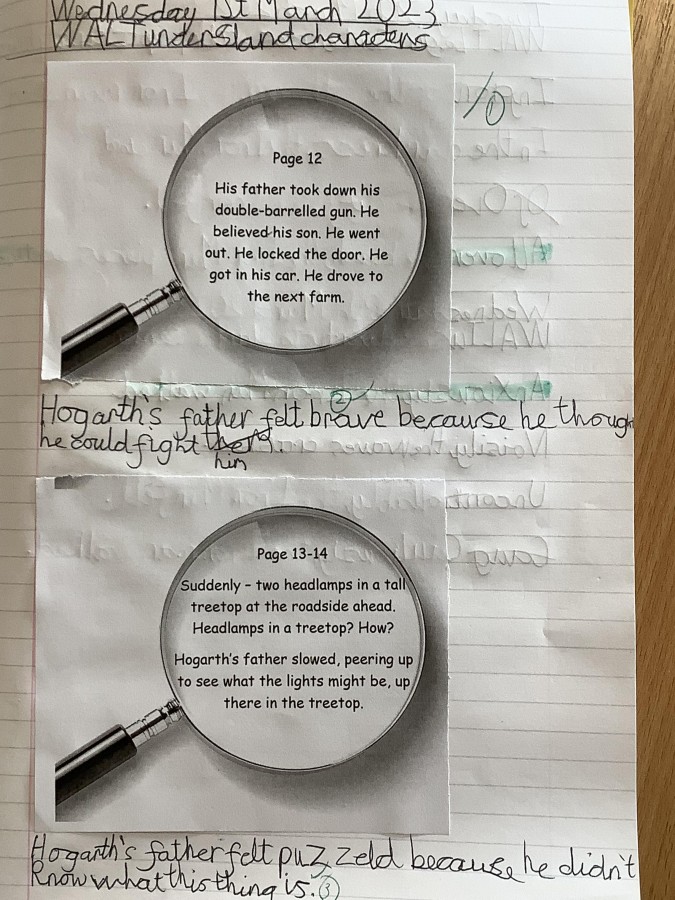 Wednesday 1st March 2023
WALT understand characters
Page 12
His father took down his
double-barrelled gun. He
believed his son. He went
out. He locked the door. He
got in his car. He drove to
the next farm.
2
Hogarth's father felt brave because he though
he could fight them.
him
Page 13-14
Suddenly – two headlamps in a tall
treetop at the roadside ahead.
Headlamps in a treetop? How?
Hogarth's father slowed, peering up
to see what the lights might be, up
there in the treetop.
Hogarth's father felt puzzeld because he didn't
know what this thing is. 3